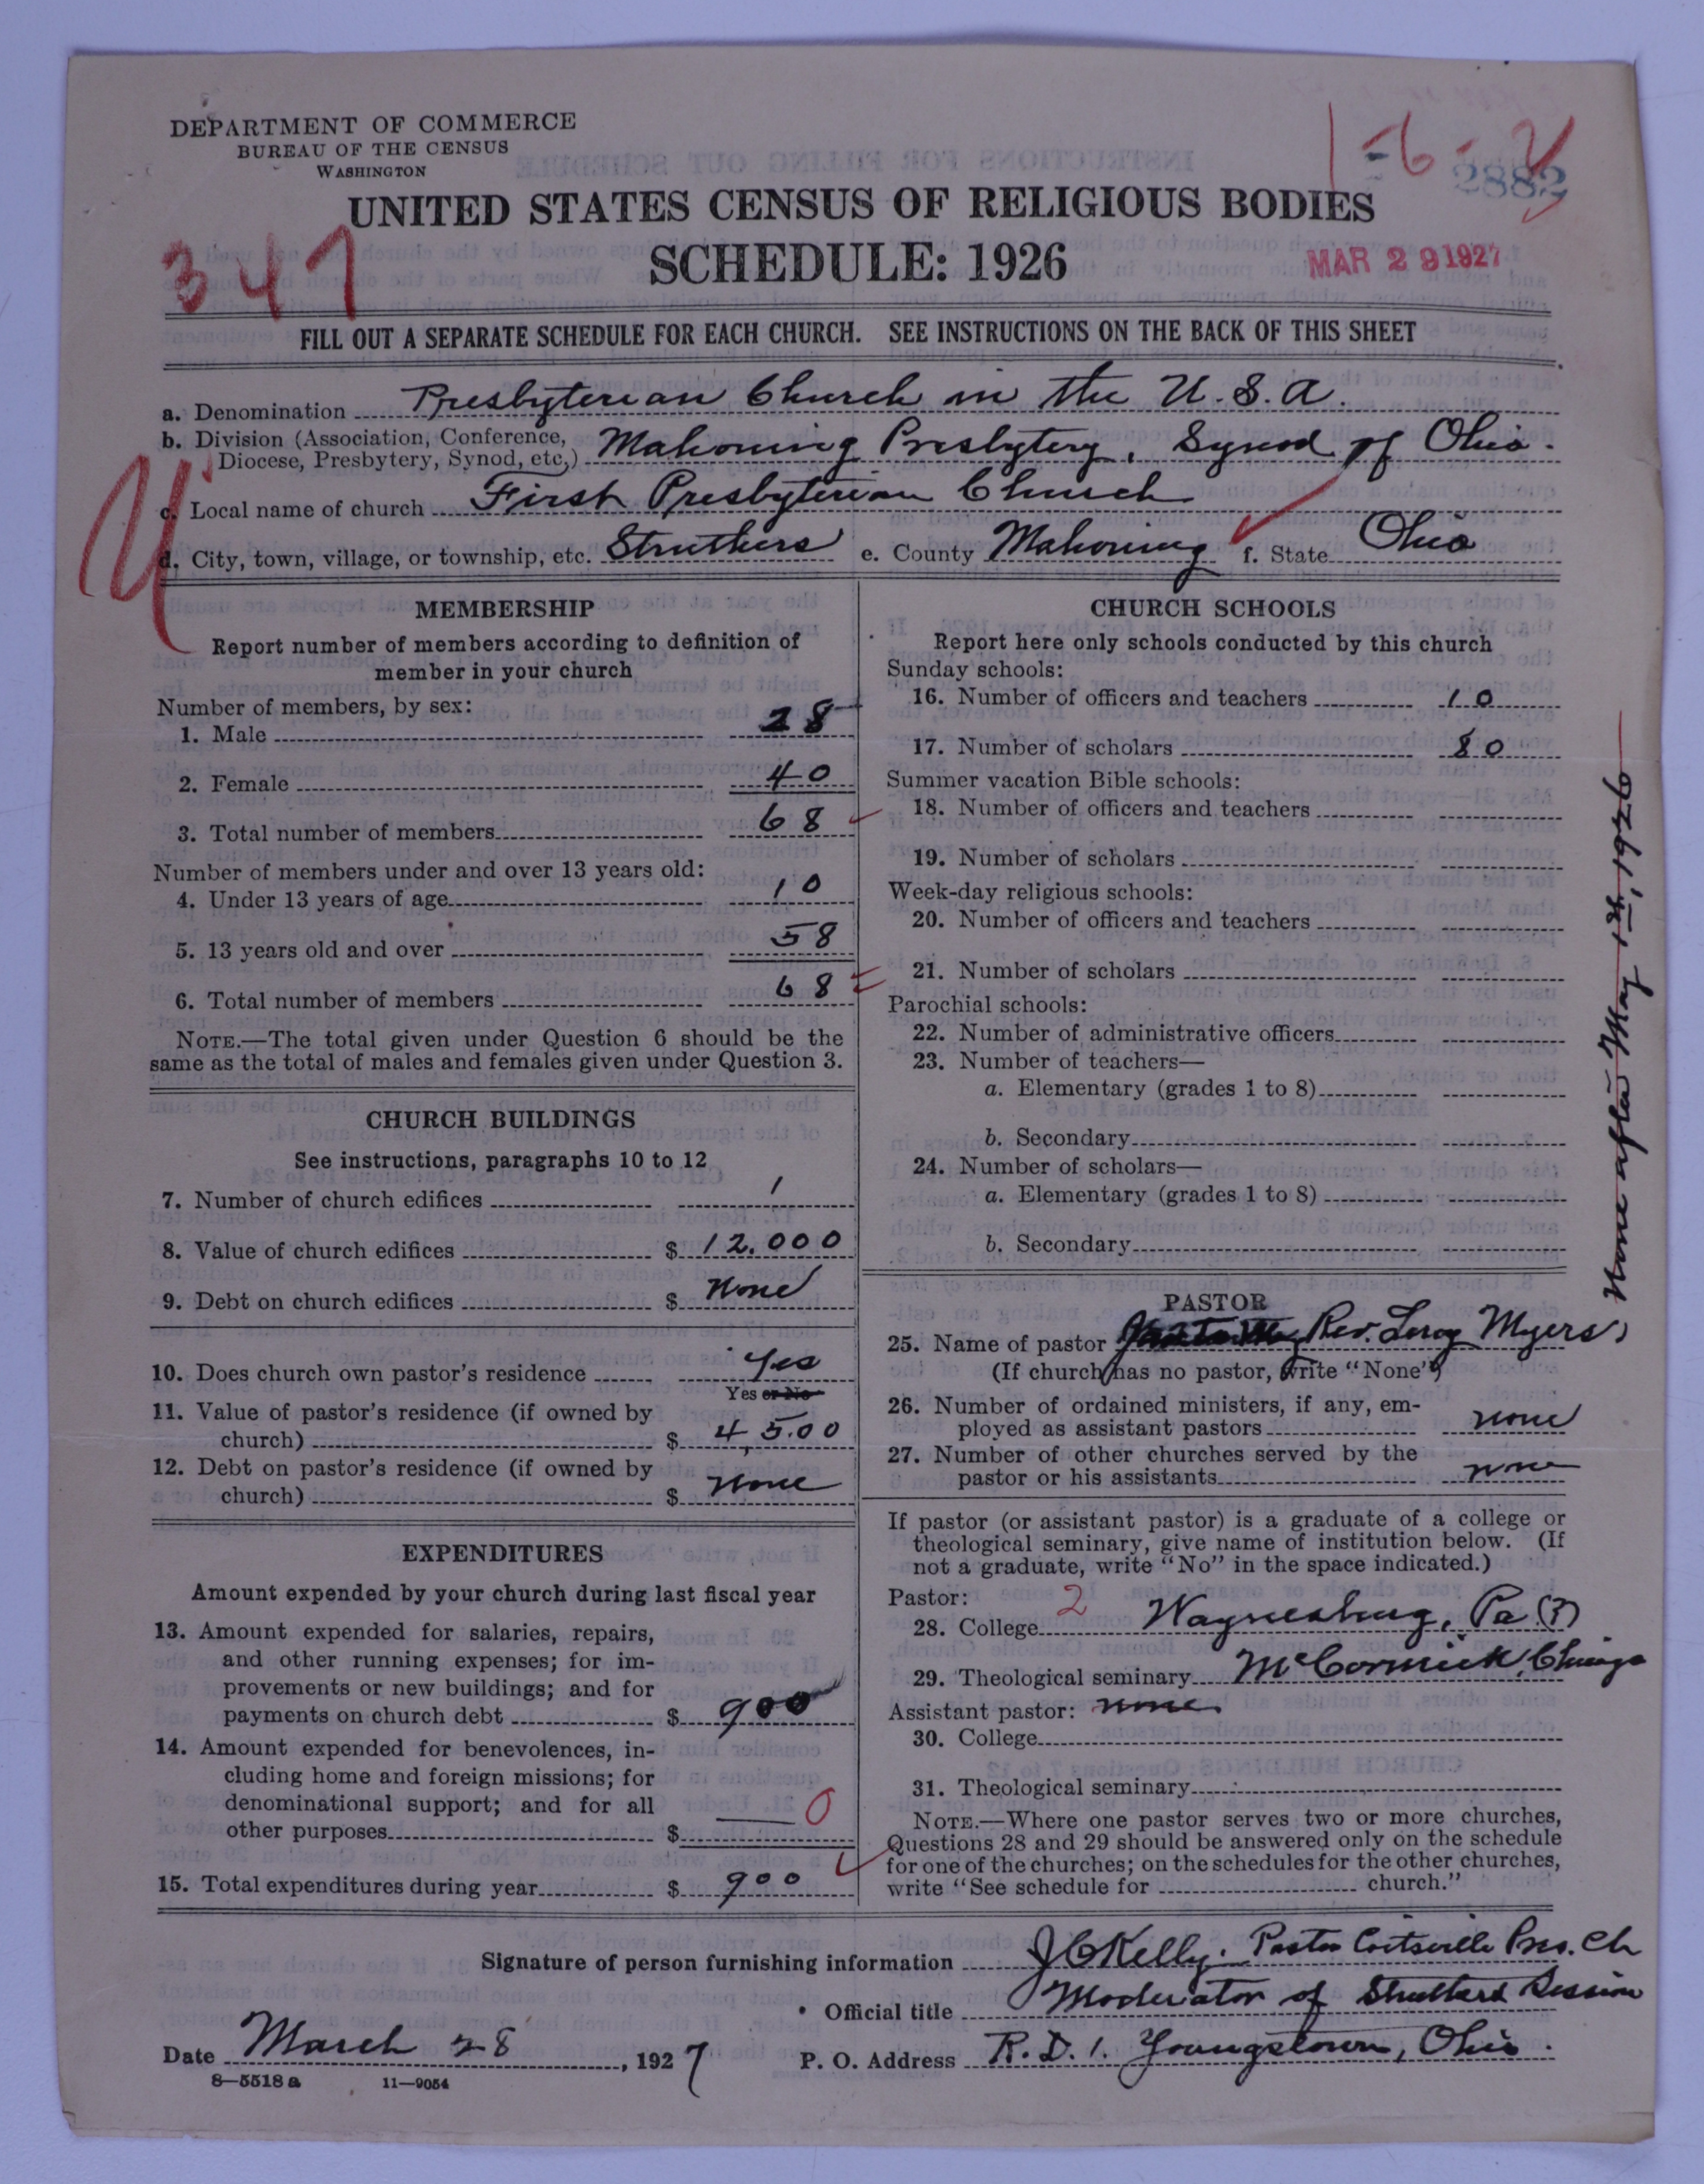 DEPARTMENT OF COMMERCE
BUREAU OF THE CENSUS
WASHINGTON
1-6-
2882
UNITED STATES CENSUS OF RELIGIOUS BODIES
347
SCHEDULE: 1926
MAR 29 1927
FILL OUT A SEPARATE SCHEDULE FOR EACH CHURCH. SEE INSTRUCTIONS ON THE BACK OF THIS SHEET
a. Denomination Presbyterian Church in the U.S.A.
b. Division (Association, Conference, Diocese, Presbytery, Synod, etc.) Mahoning Presbytery, Synod of Ohio.
c. Local name of church First Presbyterian Church
d. City, town, village, or township, etc. Struthers e. County Mahoning f. State Ohio
MEMBERSHIP
Report number of members according to definition of
member in your church
Number of members, by sex:
1. Male 28
2. Female 40
3. Total number of members 68
Number of members under and over 13 years old:
4. Under 13 years of age 10
5. 13 years old and over 58
6. Total number of members 68
NOTE.—The total given under Question 6 should be the
same as the total of males and females given under Question 3.
CHURCH BUILDINGS
See instructions, paragraphs 10 to 12
7. Number of church edifices 1
8. Value of church edifices $ 12,000
9. Debt on church edifices $ None
10. Does church own pastor's residence Yes
Yes or No
11. Value of pastor's residence (if owned by
church) $ 4,500
12. Debt on pastor's residence (if owned by
church) $ None
EXPENDITURES
Amount expended by your church during last fiscal year
13. Amount expended for salaries, repairs,
and other running expenses; for im-
provements or new buildings; and for
payments on church debt $ 900
14. Amount expended for benevolences, in-
cluding home and foreign missions; for
denominational support; and for all
other purposes $ — 0
15. Total expenditures during year $ 900
CHURCH SCHOOLS
Report here only schools conducted by this church
Sunday schools:
16. Number of officers and teachers 10
17. Number of scholars 80
Summer vacation Bible schools:
18. Number of officers and teachers
19. Number of scholars
Week-day religious schools:
20. Number of officers and teachers
21. Number of scholars
Parochial schools:
22. Number of administrative officers
23. Number of teachers—
a. Elementary (grades 1 to 8)
b. Secondary
24. Number of scholars—
a. Elementary (grades 1 to 8)
b. Secondary
PASTOR
25. Name of pastor Rev. Leroy Myers,
None after May 1st, 1926
(If church has no pastor, write "None")
26. Number of ordained ministers, if any, em-
ployed as assistant pastors none
27. Number of other churches served by the
pastor or his assistants none
If pastor (or assistant pastor) is a graduate of a college or
theological seminary, give name of institution below. (If
not a graduate, write "No" in the space indicated.)
Pastor: 2
28. College Waynesburg, Pa (?)
29. Theological seminary McCormick, Chicago
Assistant pastor: none
30. College
31. Theological seminary
NOTE.—Where one pastor serves two or more churches,
Questions 28 and 29 should be answered only on the schedule
for one of the churches; on the schedules for the other churches,
write "See schedule for church."
Signature of person furnishing information J C Kelly. Pastor Coitsville Pres. Ch
Official title Moderator of Struthers Session
Date March 28, 1927 P. O. Address R. D. 1. Youngstown, Ohio.
8—5518 a 11—9054